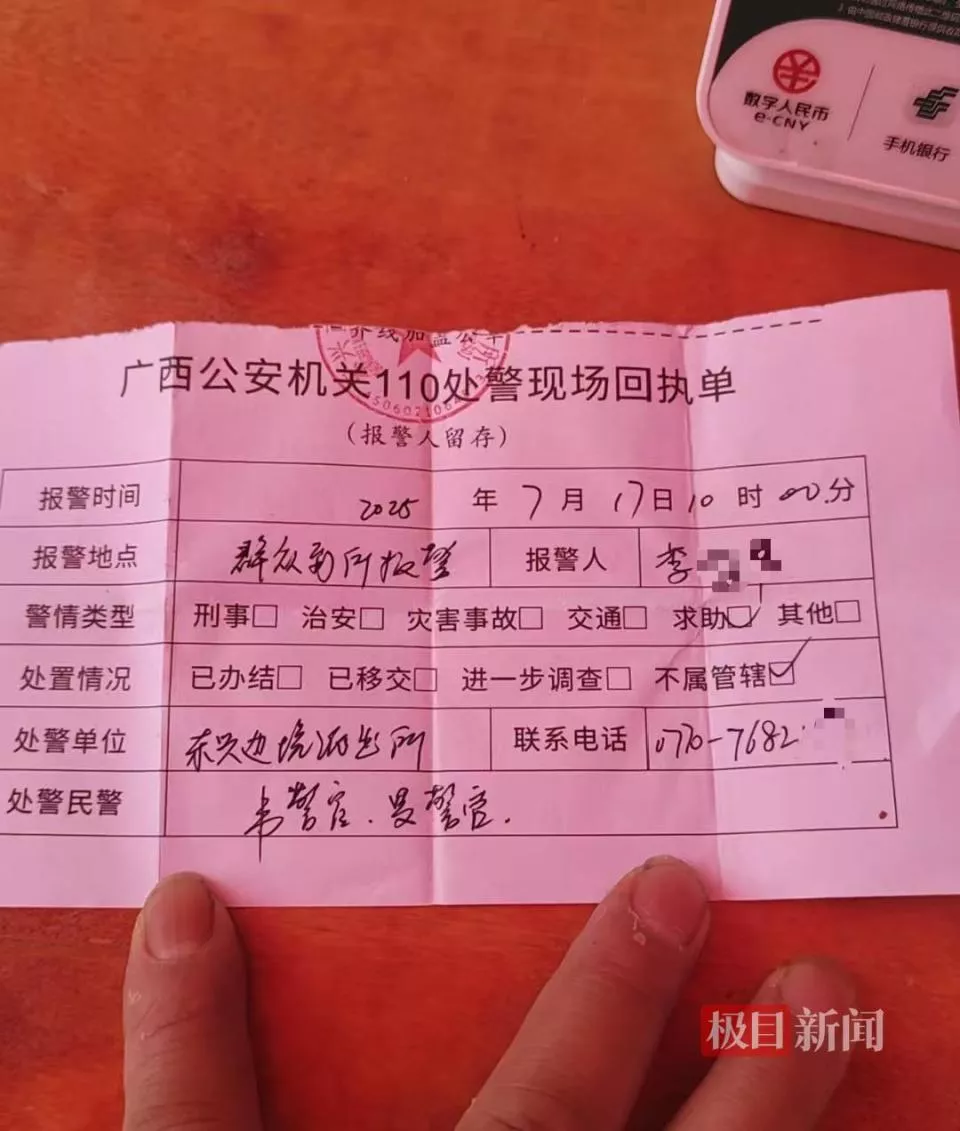 数字人民币
e-CNY
手机银行
骑线加盖公章
广西公安机关110处警现场回执单
(报警人留存)
报警时间 2025 年 7 月 17 日 10 时 00 分
报警地点 群众到所报警 报警人 李
警情类型 刑事□ 治安□ 灾害事故□ 交通□ 求助☑ 其他□
处置情况 已办结□ 已移交□ 进一步调查□ 不属管辖☑
处警单位 东兴边境派出所 联系电话 0770-7682
处警民警 韦警官、吴警官.
极目新闻